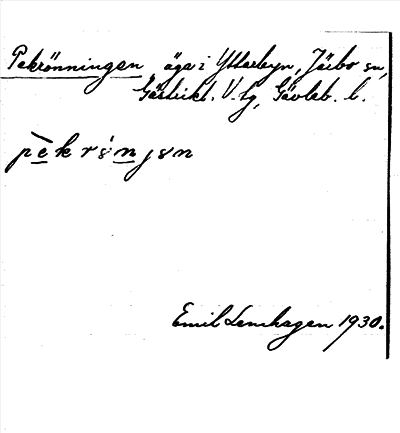 Pekrönningen äga i Ytterbyn, Järbo sn,
Gästrikl. V. tg, Gävleb. l.
pèkrönjən
Emil Lenhagen 1930.